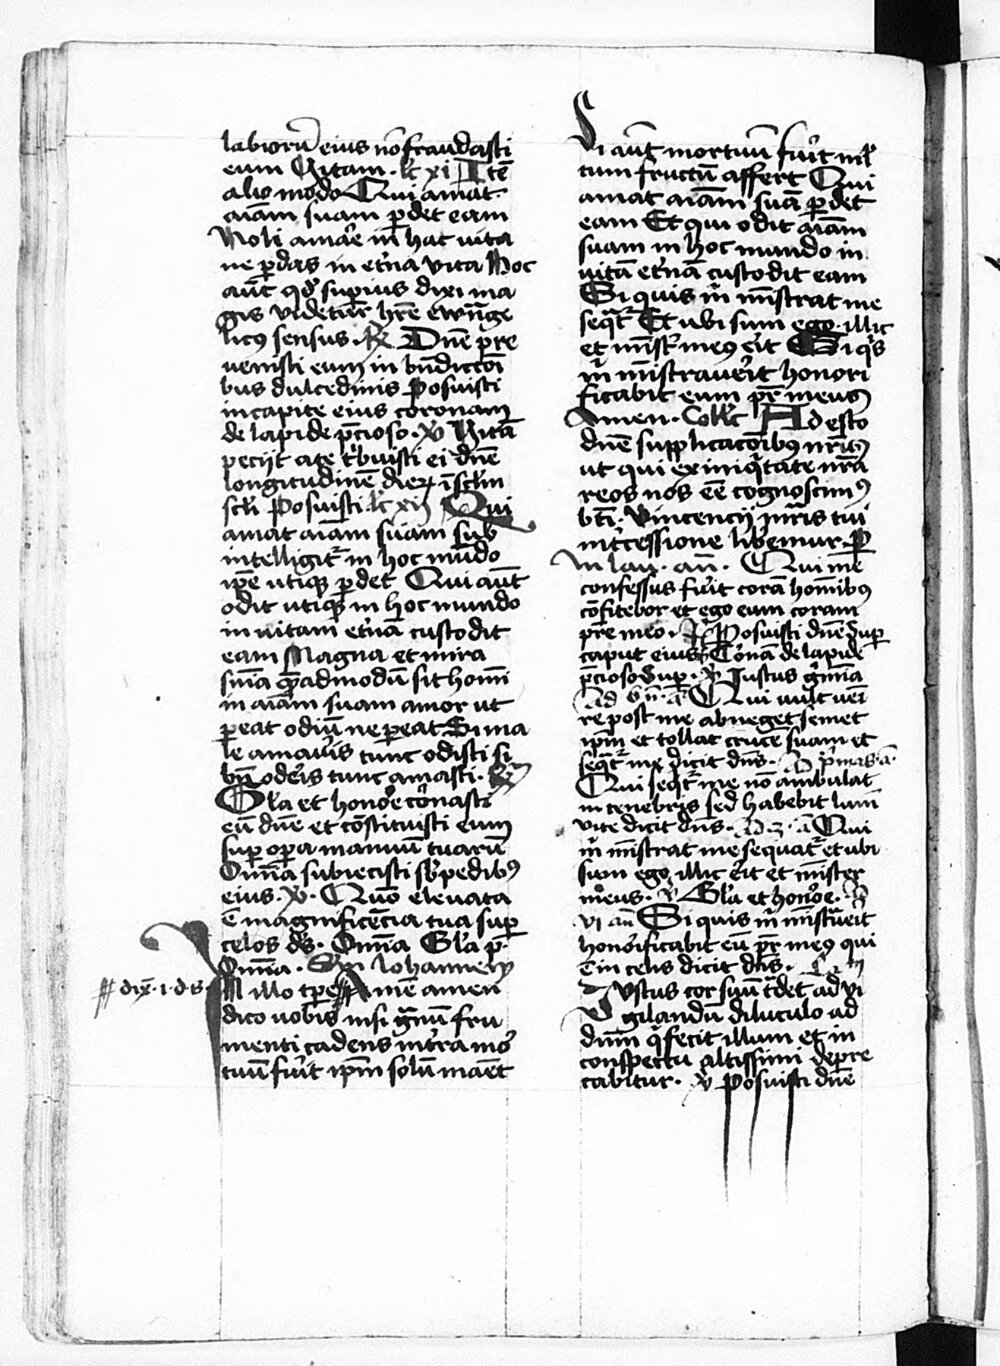 laborū eius nō fraudasti
eum Vitam. lc̄ xi Itē
alio modo Qui amat
aīam suam ꝑdet eam
Noli amar̄e in hac uita
ne ꝑdas in et̄na vita Hoc
aūt qd̓ superius dixi ma
gis videtur hr̄e ewn̄ge
licꝯ sensus. R̄x Dn̄e pre
venisti eum in bn̄diccōi
bus dulcedinis Posuisti
in capite eius coronam
de lapide p̄cioso. v̄ Vitā
peciit a te t̓buisti ei dn̄e
longitudinē dieꝝ ī sc̄lm
sc̄li Posuisti lc̄ xij Qui
amat aīam suam sub
intelligit᷑ in hoc mūdo
ip̄e utiqꝫ ꝑdet Qui aūt
odit utiqꝫ in hoc mundo
in uitam et̄nā custodit
eam Magna et mira
sn̄ia quēadmodū sit homī
in aīam suam amor ut
ꝑeat odiū ne ꝑeat Si ma
le amau̓is tunc odisti si
bn̄ oder̓is tunc amasti. R̄x
Gl̄a et honor̄e cōnasti
eū dn̄e et cōstituisti eum
suꝑ oꝑa manuū tuarū
Om̄ia subiecisti sb̓ pedibꝯ
eius. v̄. Qūo eleuata
ē magnificēcia tua suꝑ
celos ds̄. Om̄ia Gl̄a p.
Om̄ia. Iohannem
IN illo tꝑe Amē amen
# dix̄. i. d. s.
dico uobis nisi gͣnū fru
menti cadens in t̓ra mor̓
tuū fu̓it ip̄m solū maēt
Si aūt mortuū fu̓it ml̓
tum fructū affert Qui
amat aīam suā ꝑdet
eam Et qui odit aīam
suam in hoc mundo in
uitā et̓nā custodit eam
Si quis m̓ mīstrat me
seqͣt᷑ Et ubi sum ego. illic
et mīst̓ meꝯ er̓it Si qͥs
m̓ mīstrauer̓it honori
ficabit eum pr̄ meus
Amen. Coll̄c Adesto
dn̄e supplicacōibꝯ nr̄is
ut qui ex iniqͥtate nr̄a
reos nos eē cognoscimꝯ
bt̄i. Vincencij mr̄is tui
int̓cessione lib̓emur. ꝑ
In lau. an̄. Qui me
confessus fu̓it corā homībꝯ
cōfitebor et ego eum coram
pr̄e meo. R̄ Posuisti dn̄e Suꝑ
caput eius Coronā de lapide
p̄cioso Suꝑ. v̄ Iustus gͥmīa
Ad bn̄. ā Qui uult ueī
re post me abneget semet
ip̄m et tollat crucē suam et
seqͣt᷑ me dicit dn̄s. Ad p̓mas. ā.
Qui seqͥt᷑ me nō ambulat
in tenebris sed habebit lum̄
vite dicit dn̄s. Ad iij. ā Qui
m̓ mīstrat me sequat᷑ et ubi
sum ego illic er̓it et mīster
meus. v̄ Gl̄a et honor̄e. Ad
vi an̄ Si quis m̓ mīstu̓eit
honorificabit eū pr̄ meꝯ qui
ē in celis dicit dn̄s.
Iustus cor suū t̓det ad vi
gilandū diluculo ad
dn̄m qͥ fecit illum et in
conspectu altissimi depre
cabitur. v̄ Posuisti dn̄e